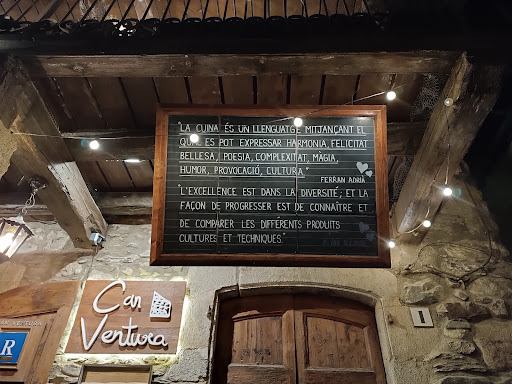 "LA CUINA ÉS UN LLENGUATGE MITJANÇANT EL
QUAL ES POT EXPRESSAR HARMONIA, FELICITAT,
BELLESA, POESIA, COMPLEXITAT, MAGIA,
HUMOR, PROVOCACIÓ, CULTURA."
FERRAN ADRIÀ
"L'EXCELLENCE EST DANS LA DIVERSITÉ; ET LA
FAÇON DE PROGRESSER EST DE CONNAÎTRE ET
DE COMPARER LES DIFFÉRENTS PRODUITS
CULTURES ET TECHNIQUES"
Can
Ventura
R